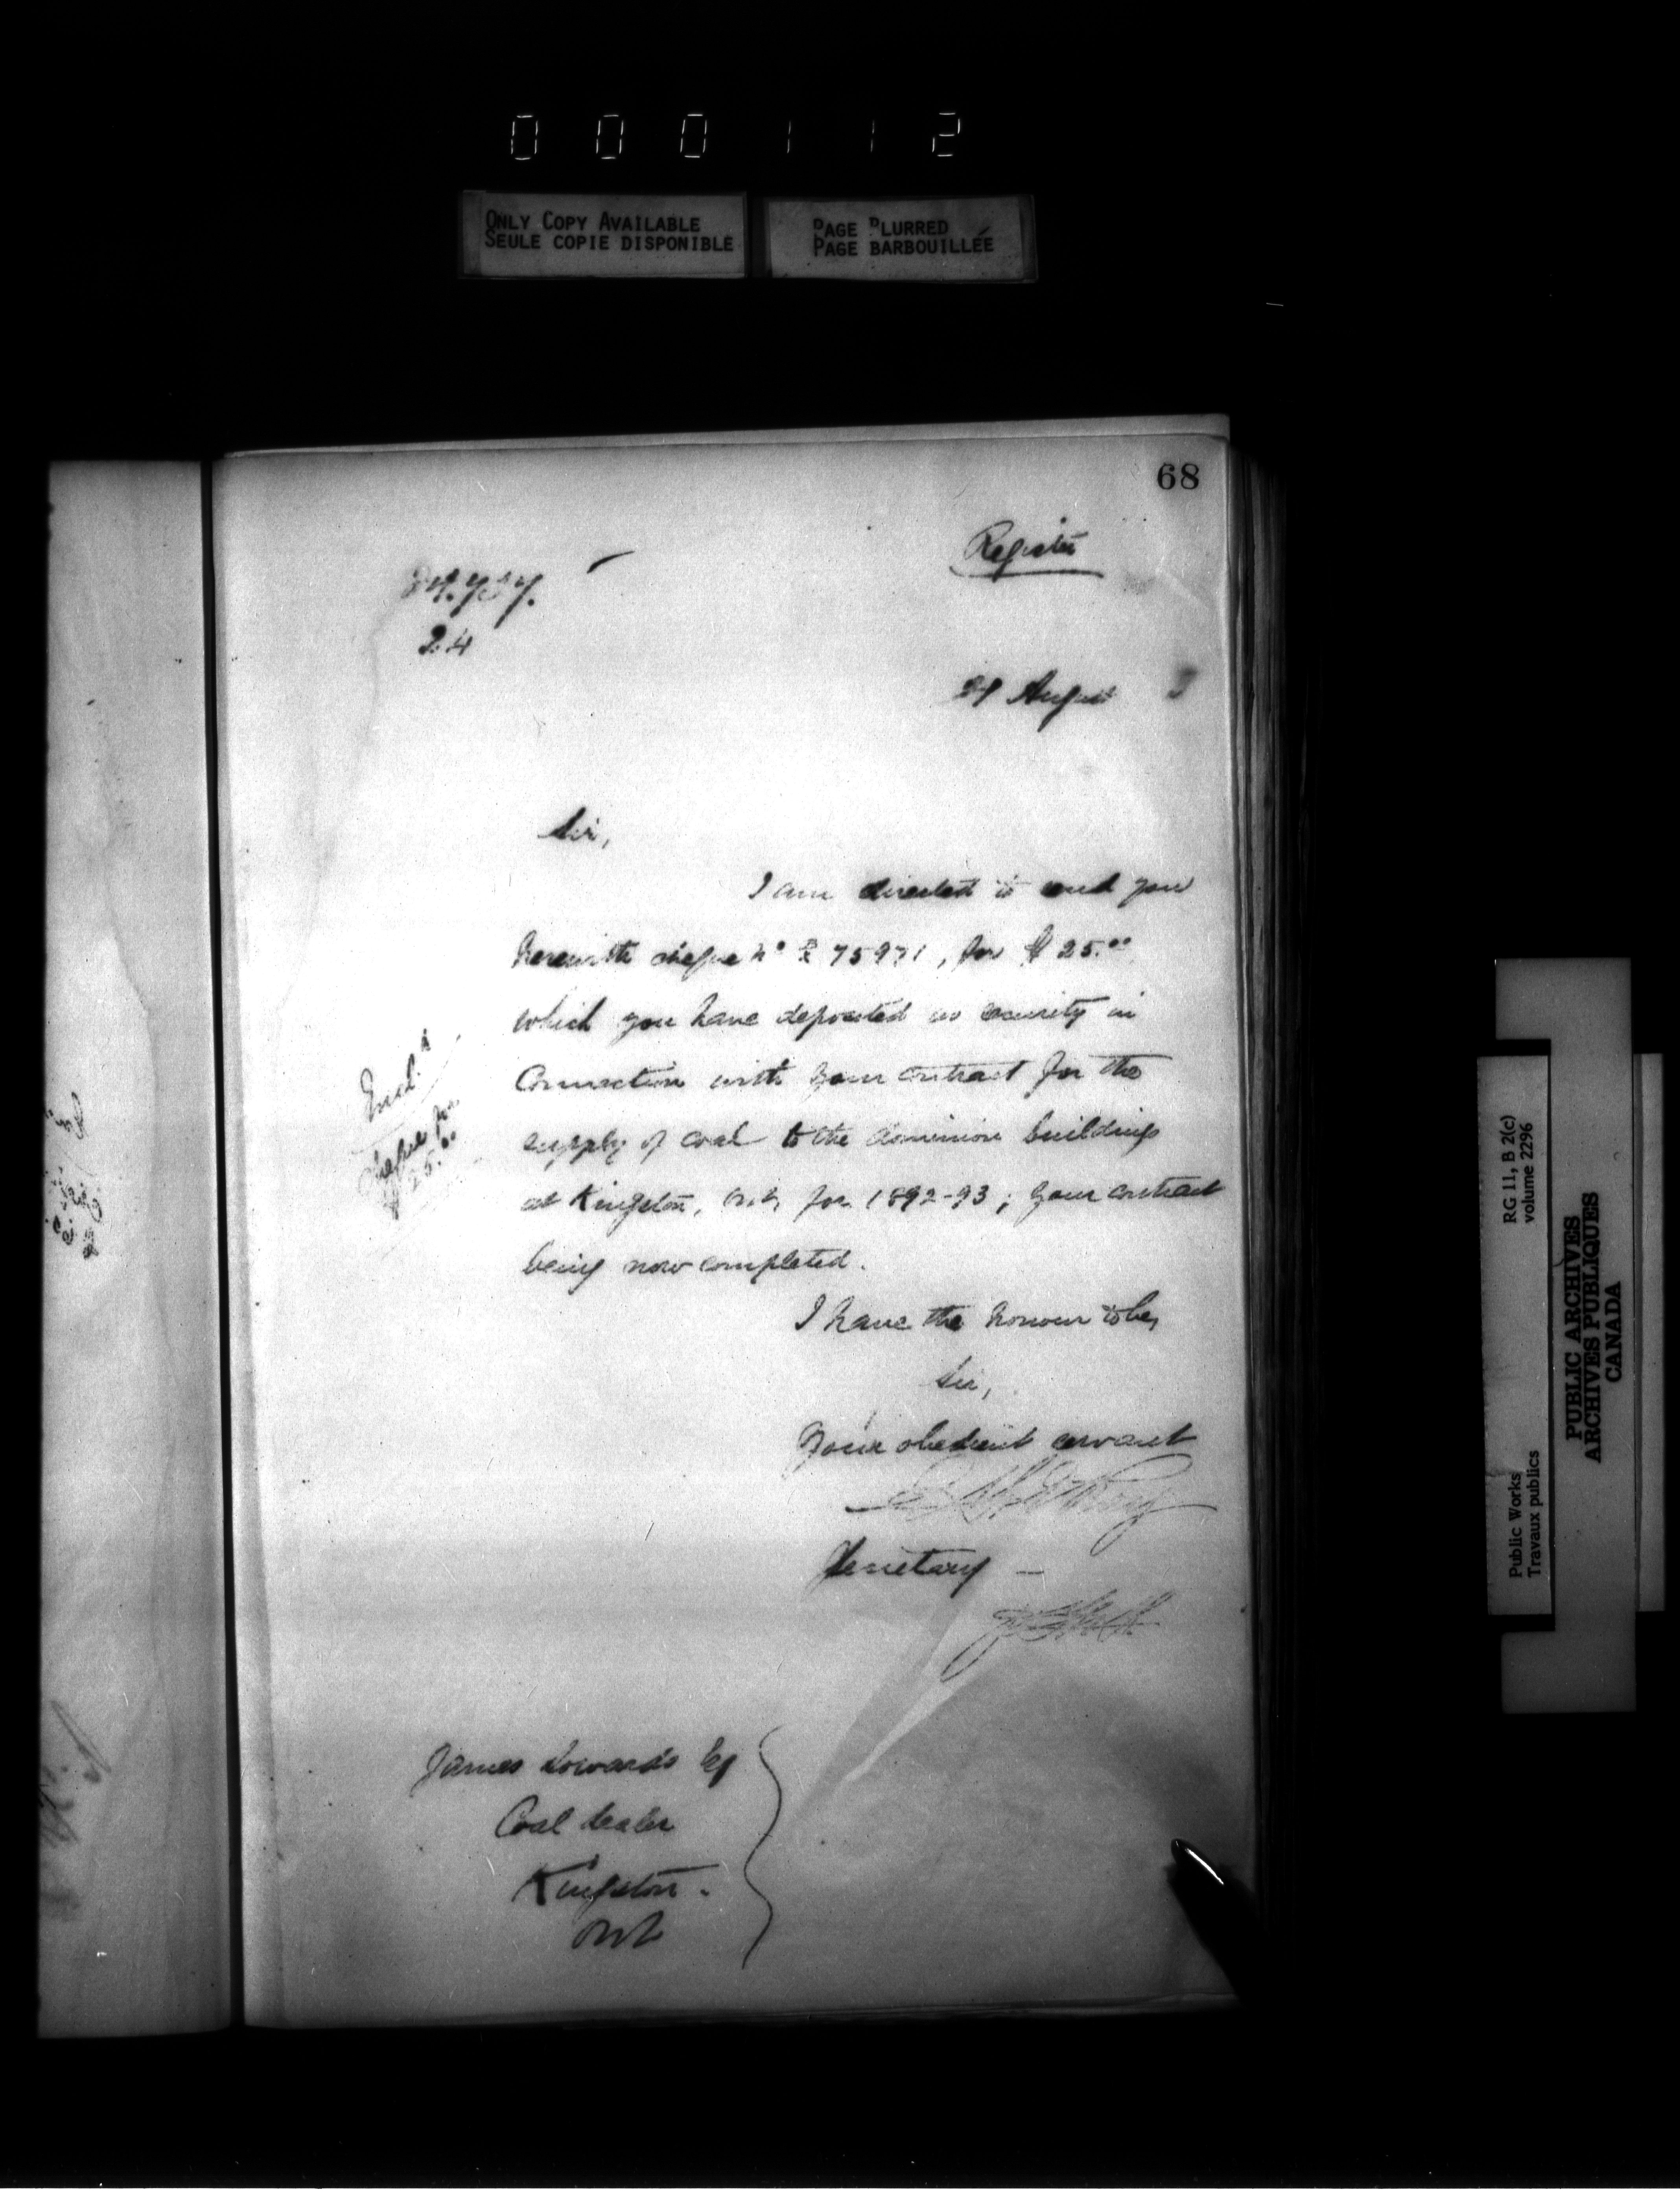 000112
ONLY COPY AVAILABLE
SEULE COPIE DISPONIBLE
PAGE BLURRED
PAGE BARBOUILLÉE
68
Register
24
August 3
Sir,
I am directed to send you
herewith cheque No 75971, for $25.00
which you have deposited as security in
Connection with your contract for the
supply of coal to the dominion buildings
at Kingston, Ont, for 1892-93; your contract
being now completed.
Encl.
Cheque for
25.00
I have the honour to be,
Sir,
Your obedient servant
Secretary
James Sowards Esq
Coal dealer
Kingston.
Ont
Public Works
Travaux publics
RG 11, B 2(c)
volume 2296
PUBLIC ARCHIVES
ARCHIVES PUBLIQUES
CANADA